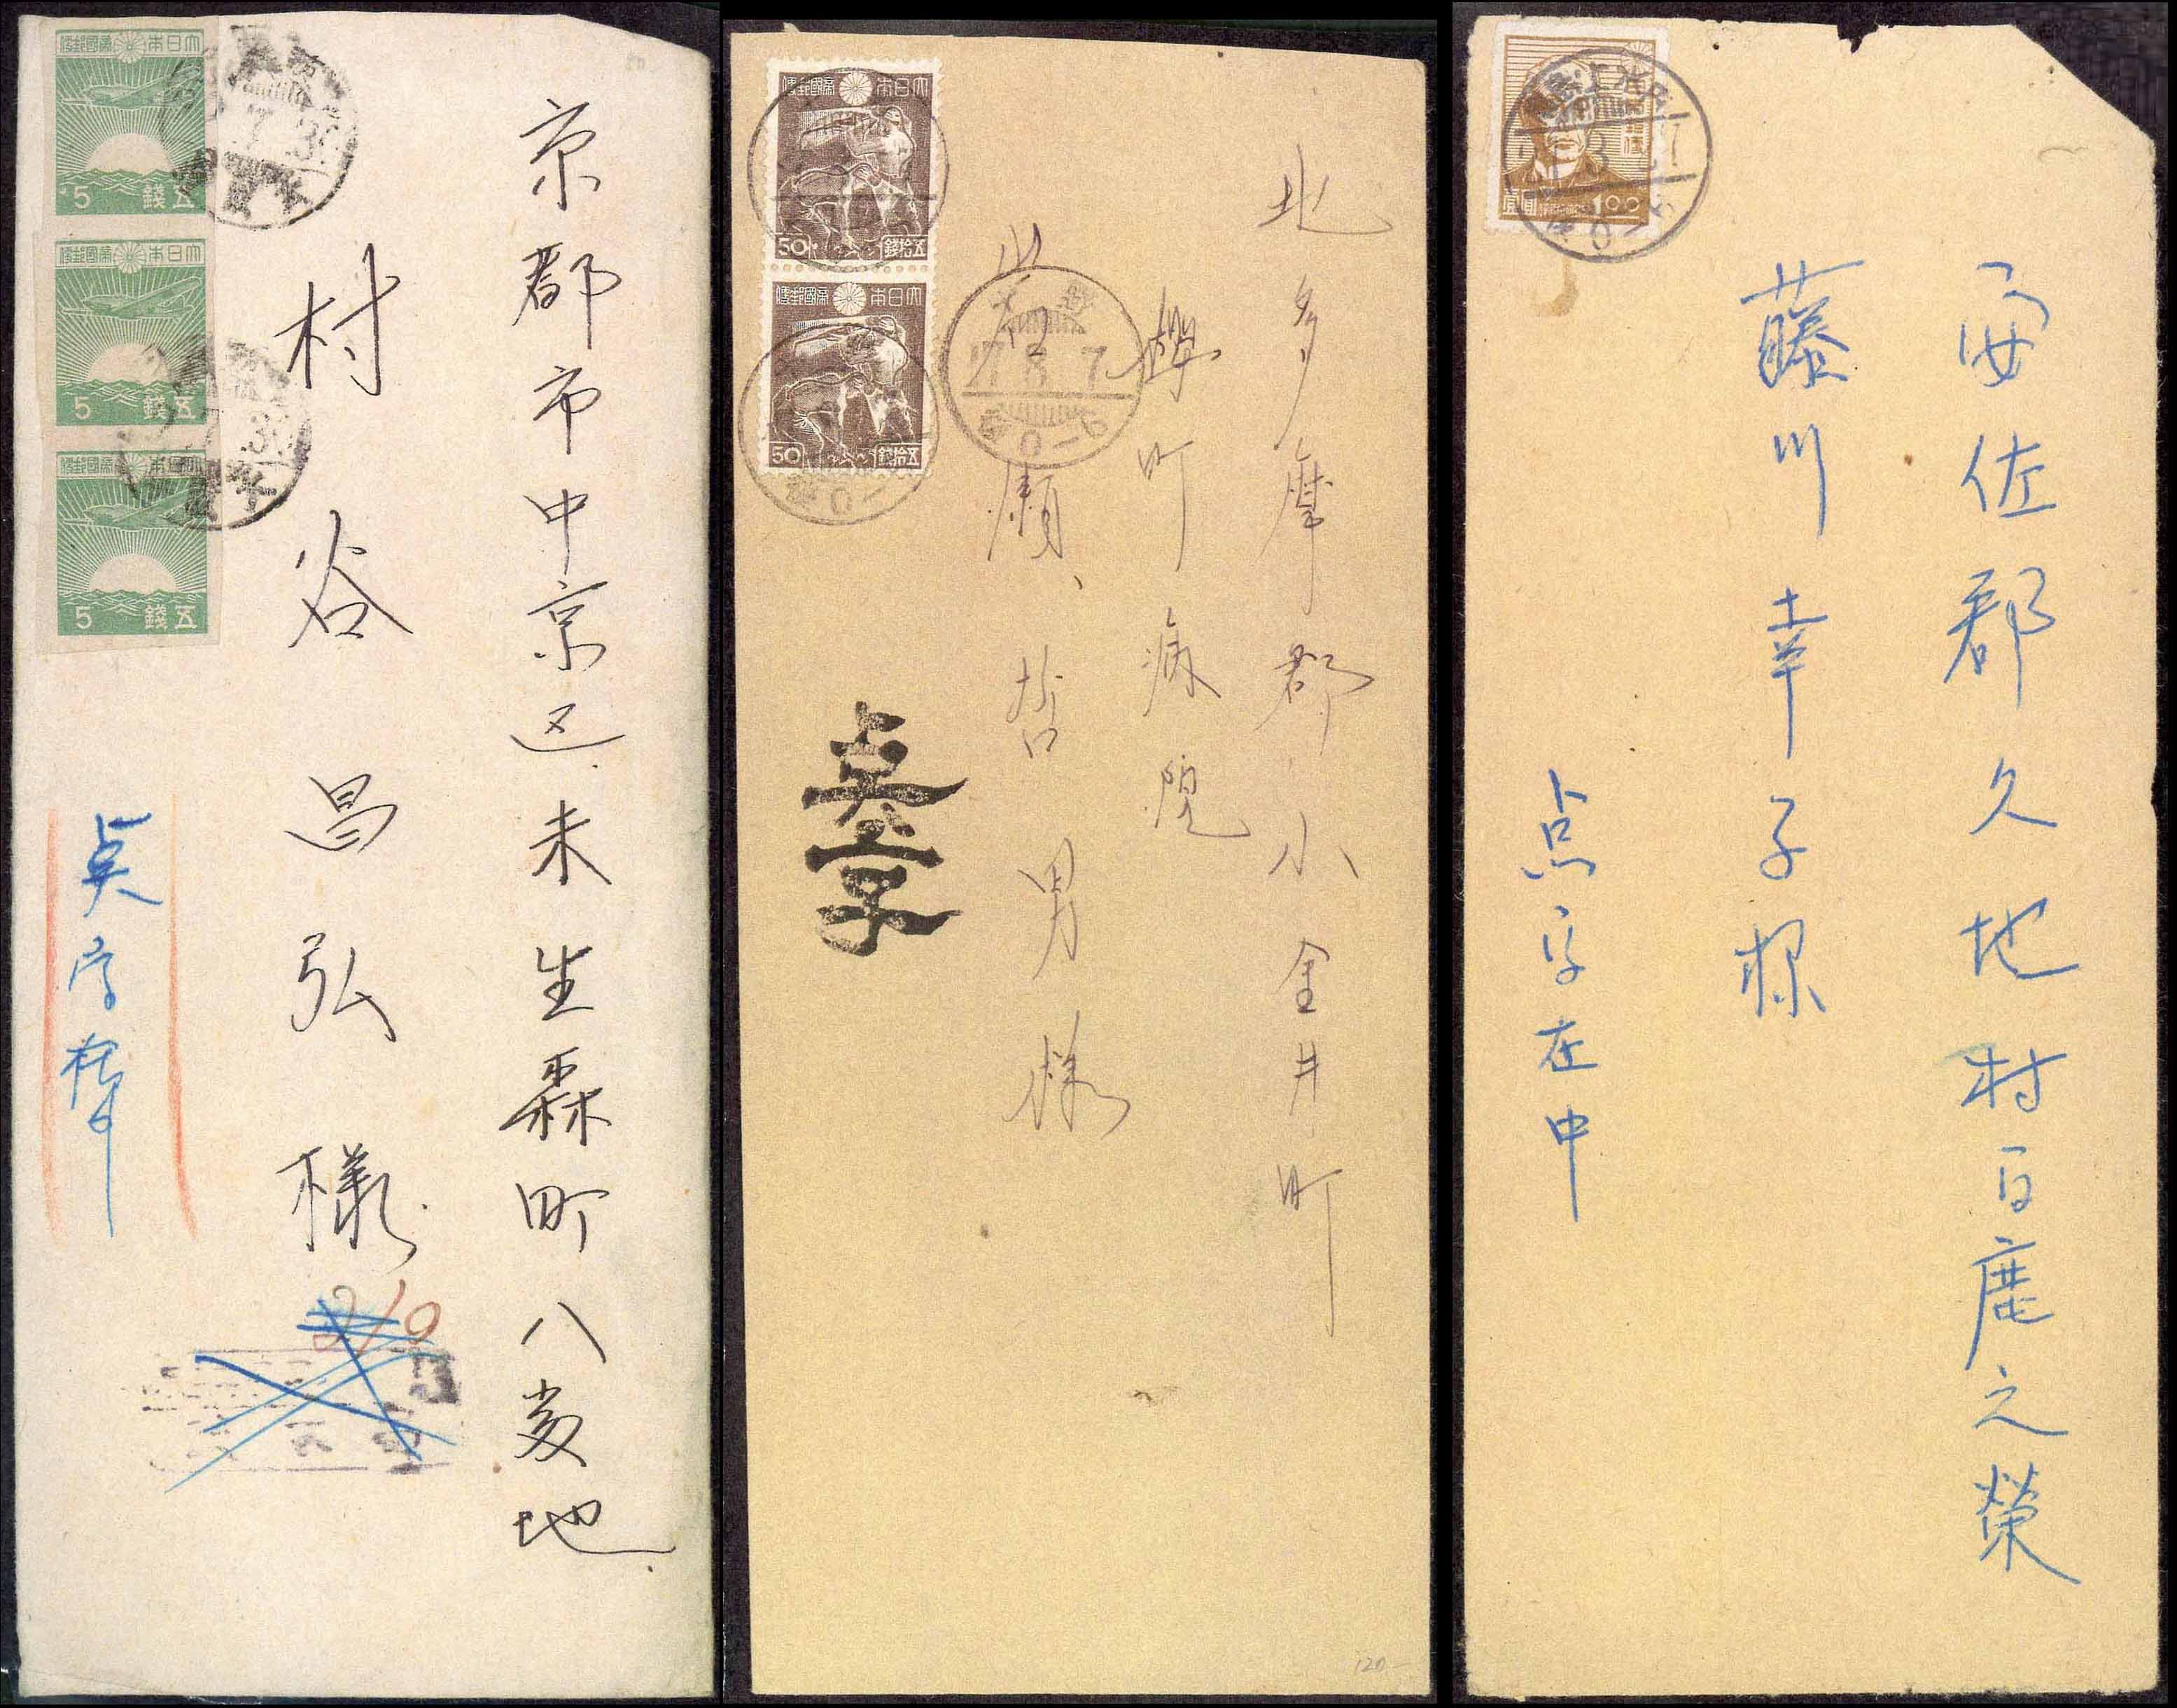 京都市中京区未生森町八番地
村谷昌弘様
点字在中
大日本帝國郵便
5 五錢
大日本帝國郵便
5 五錢
大日本帝國郵便
5 五錢
北多摩郡小金井町
櫻町病院
哲男様
点字
大日本帝國郵便
50 五拾錢
大日本帝國郵便
50 五拾錢
27 7
后0-6
120-
安佐郡久地村百鹿之榮
藤川幸子様
点字在中
壹圓 1.00